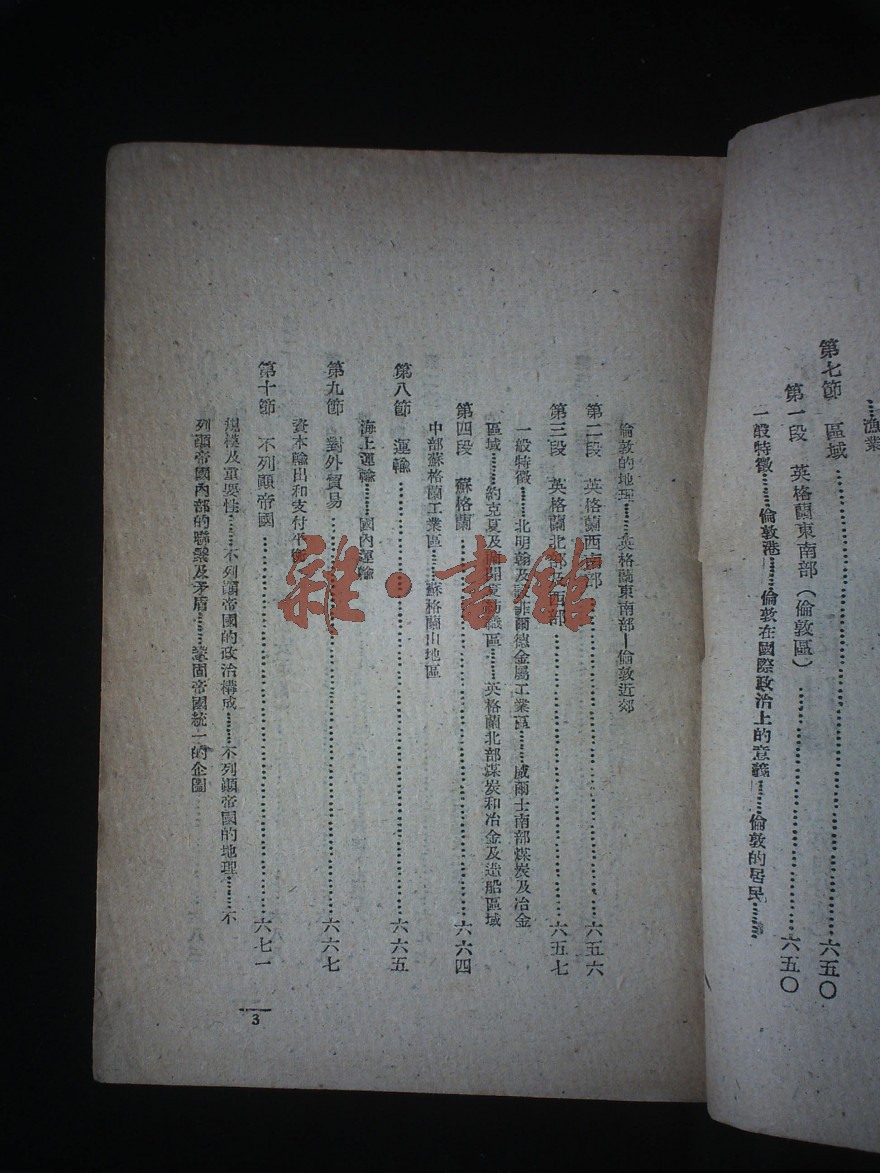 ……漁業
第七節　區域……六五〇
第一段　英格蘭東南部（倫敦區）……六五〇
一般特徵……倫敦港……倫敦在國際政治上的意義……倫敦的居民……
倫敦的地理……英格蘭東南部—倫敦近郊
第二段　英格蘭西南部……六五六
第三段　英格蘭北部及西部……六五七
一般特徵……北明翰及設非爾德金屬工業區……威爾士南部煤炭及冶金
區域……約克夏及蘭開夏紡織區……英格蘭北部煤炭和冶金及造船區域
第四段　蘇格蘭……六六四
中部蘇格蘭工業區……蘇格蘭山地區
第八節　運輸……六六五
海上運輸……國內運輸
第九節　對外貿易……六六七
資本輸出和支付平衡
第十節　不列顛帝國……六七一
規模及重要性……不列顛帝國的政治構成……不列顛帝國的地理……不
列顛帝國內部的聯繫及矛盾……鞏固帝國統一的企圖
3
雜·書館